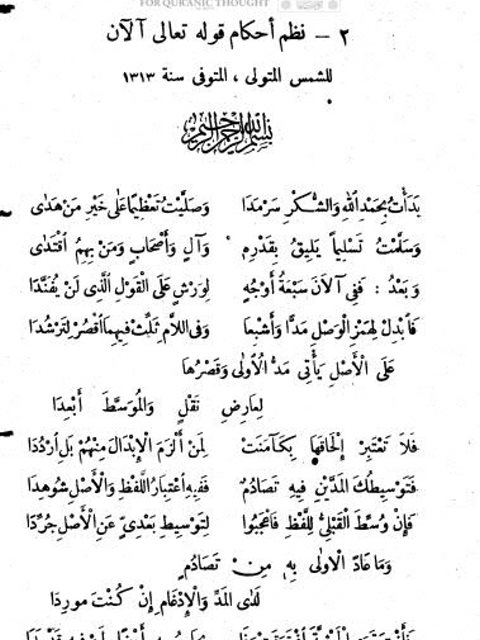 FOR QURANIC THOUGHT
٢ – نظم أحكام قوله تعالى آلآن
للشمس المتولى ، المتوفى سنة ١٣١٣
بسم الله الرحمن الرحيم
بَدَأْتُ بِحَمْدِ اللهِ وَالشُّكْرِ سَرْمَدَا وَصَلَّيْتُ تَعْظِيمًا عَلَى خَيْرِ مَنْ هَدَى
وَسَلَّمْتُ تَسْلِيمًا يَلِيقُ بِقَدْرِهِ وَآلٍ وَأَصْحَابٍ وَمَنْ بِهِمُ اقْتَدَى
وَبَعْدُ : فَفِي آلَانَ سَبْعَةُ أَوْجُهٍ لِوَرْشٍ عَلَى الْقَوْلِ الَّذِى لَنْ يُفَنَّدَا
فَأَبْدِلْ لِهَمْزِ الْوَصْلِ مَدًّا وَأَشْبِعَا وَفِى اللَّامِ ثَلِّثْ فِيهِمَا اقْصُرْ لِتَرْشُدَا
عَلَى الْأَصْلِ يَأْتِى مَدُّ الْأُولَى وَقَصْرُهَا
لِعَارِضِ نَقْلٍ وَالْمُوَسَّطَ أَبْعِدَا
فَلَا تَعْتَبِرْ إِلْحَاقَهَا بِكَآمَنَتْ لِمَنْ أَلْزَمَ الْإِبْدَالَ مِنْهُمْ بَلِ ارْدُدَا
فَتَوْسِيطُكَ الْمَدَّيْنِ فِيهِ تَصَادُمٌ فَفِيهِ اعْتِبَارُ اللَّفْظِ وَالْأَصْلِ شُوهِدَا
فَإِنْ وُسِّطَ الْقَبْلِىُّ لِلَّفْظِ فَاعْجَبُوا لِتَوْسِيطِ بَعْدِىٍّ عَنِ الْأَصْلِ جُرِّدَا
وَمَا عَادَ الْاولَى بِهِ مِنْ تَصَادُمٍ
لَدَى الْمَدِّ وَالْإِدْغَامِ إِنْ كُنْتَ مورِدَا